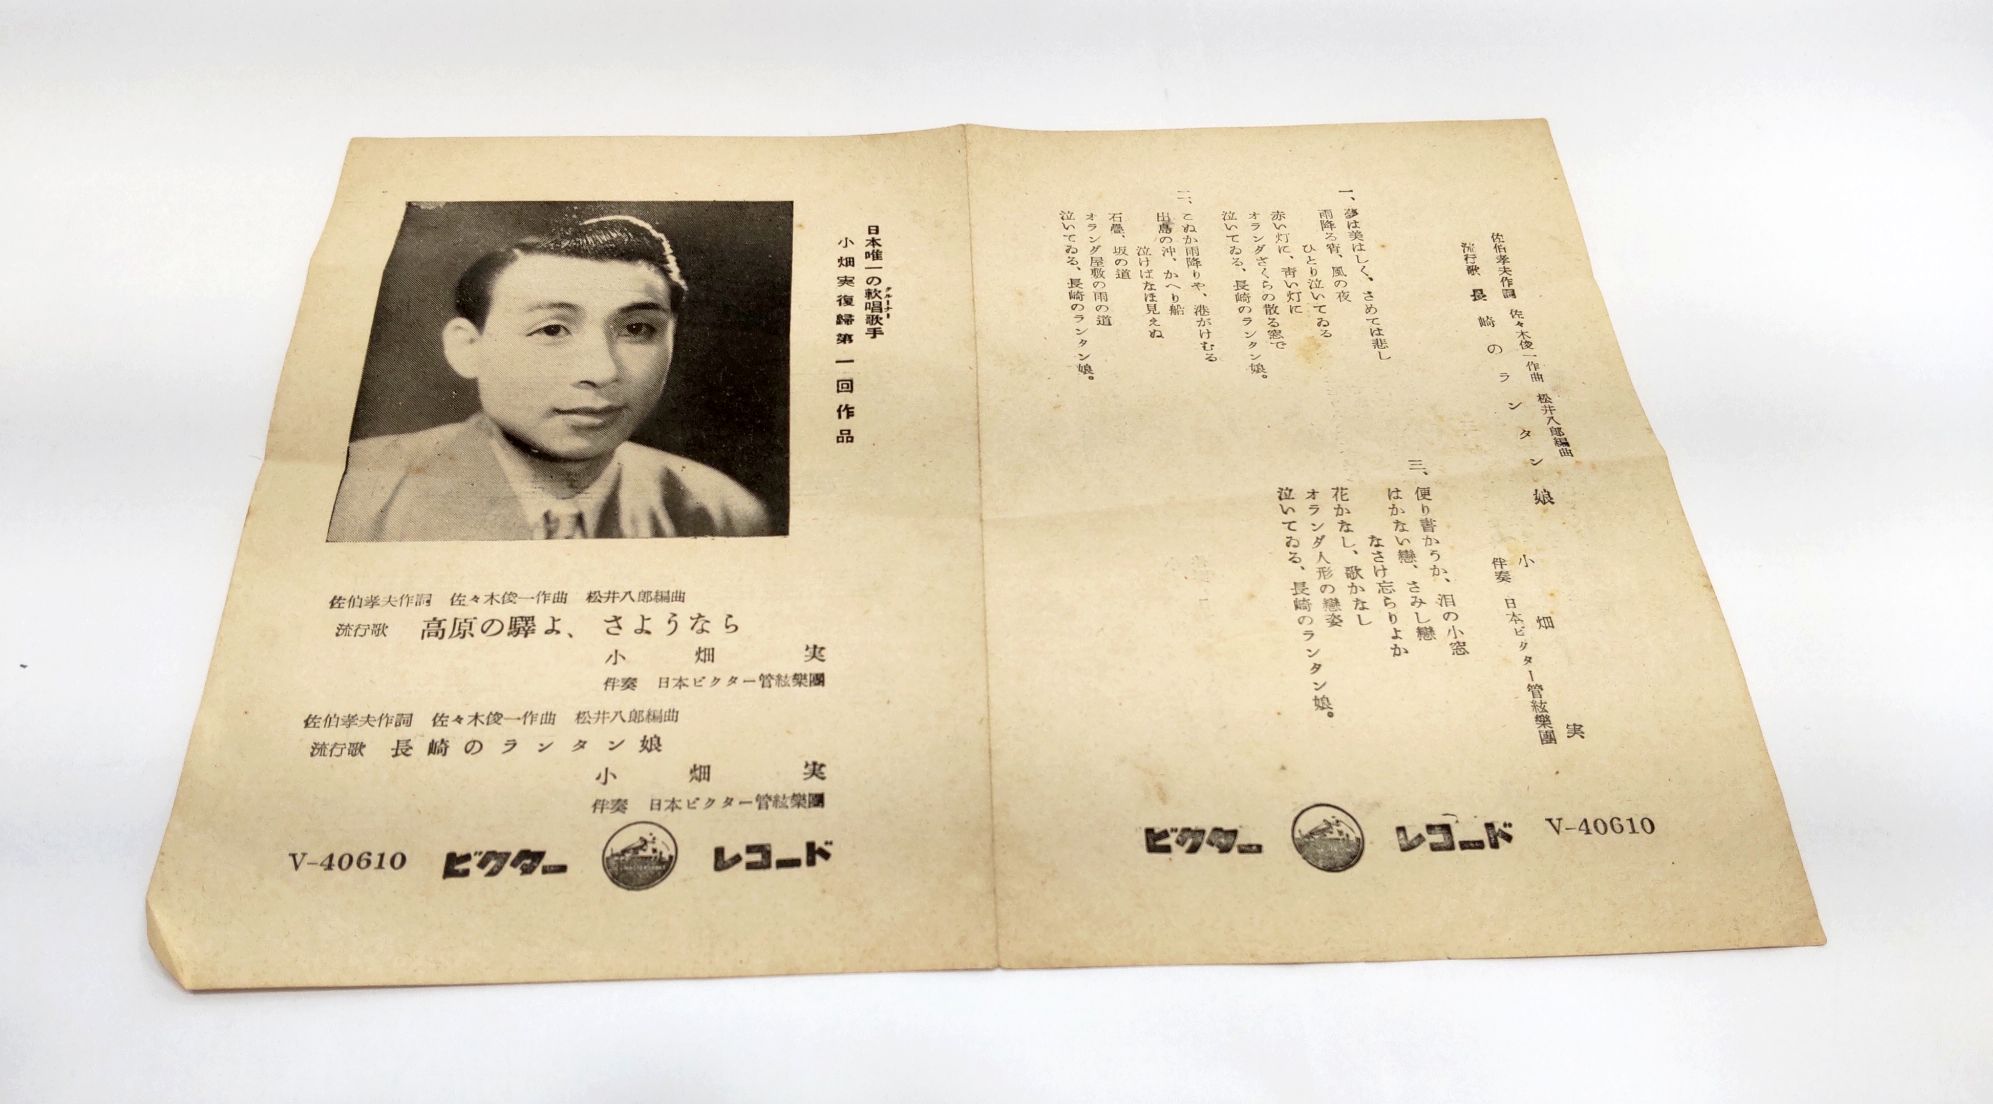 日本唯一の軟唱歌手
クルーナー
小畑実復歸第一回作品
佐伯孝夫作詞 佐々木俊一作曲 松井八郎編曲
流行歌 高原の驛よ、さようなら
小畑実
伴奏 日本ビクター管絃樂團
佐伯孝夫作詞 佐々木俊一作曲 松井八郎編曲
流行歌 長崎のランタン娘
小畑実
伴奏 日本ビクター管絃樂團
V-40610 ビクター レコード
佐伯孝夫作詞 佐々木俊一作曲 松井八郎編曲
流行歌 長崎のランタン娘
小畑実
伴奏 日本ビクター管絃樂團
一、夢は美はしく、さめては悲し
雨降る宵、風の夜
ひとり泣いてゐる
赤い灯に、靑い灯に
オランダさくらの散る窓で
泣いてゐる、長崎のランタン娘。
二、こぬか雨降りや、港がけむる
出島の沖、かへり船
泣けばなほ見えぬ
石疊、坂の道
オランダ屋敷の雨の道
泣いてゐる、長崎のランタン娘。
三、便り書かうか、泪の小窓
はかない戀、さみし戀
なさけ忘らりよか
花かなし、歌かなし
オランダ人形の戀姿
泣いてゐる、長崎のランタン娘。
ビクター レコード V-40610